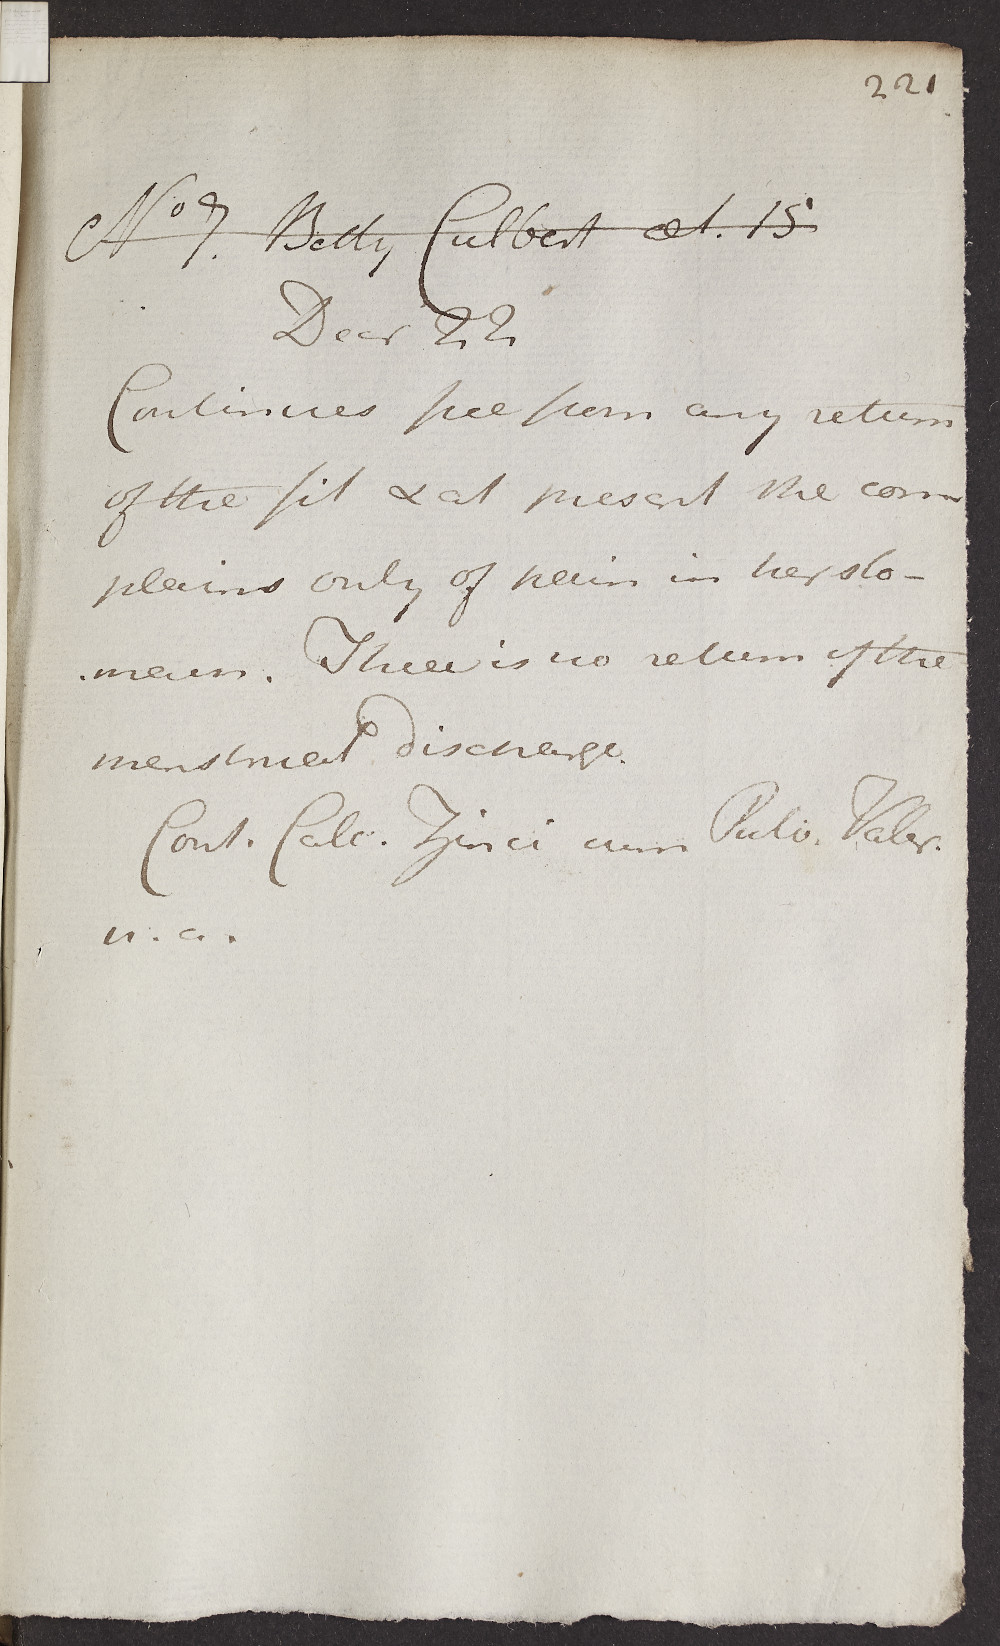 221
No 7. Betty Culbert æt. 15
Decr 22
Continues free from any return
of the fit & at present she com
plains only of pain in her sto-
-mach. There is no return of the
menstrual discharge.
Cont. Calc. Zinci cum Pulv. Valer.
u. a.